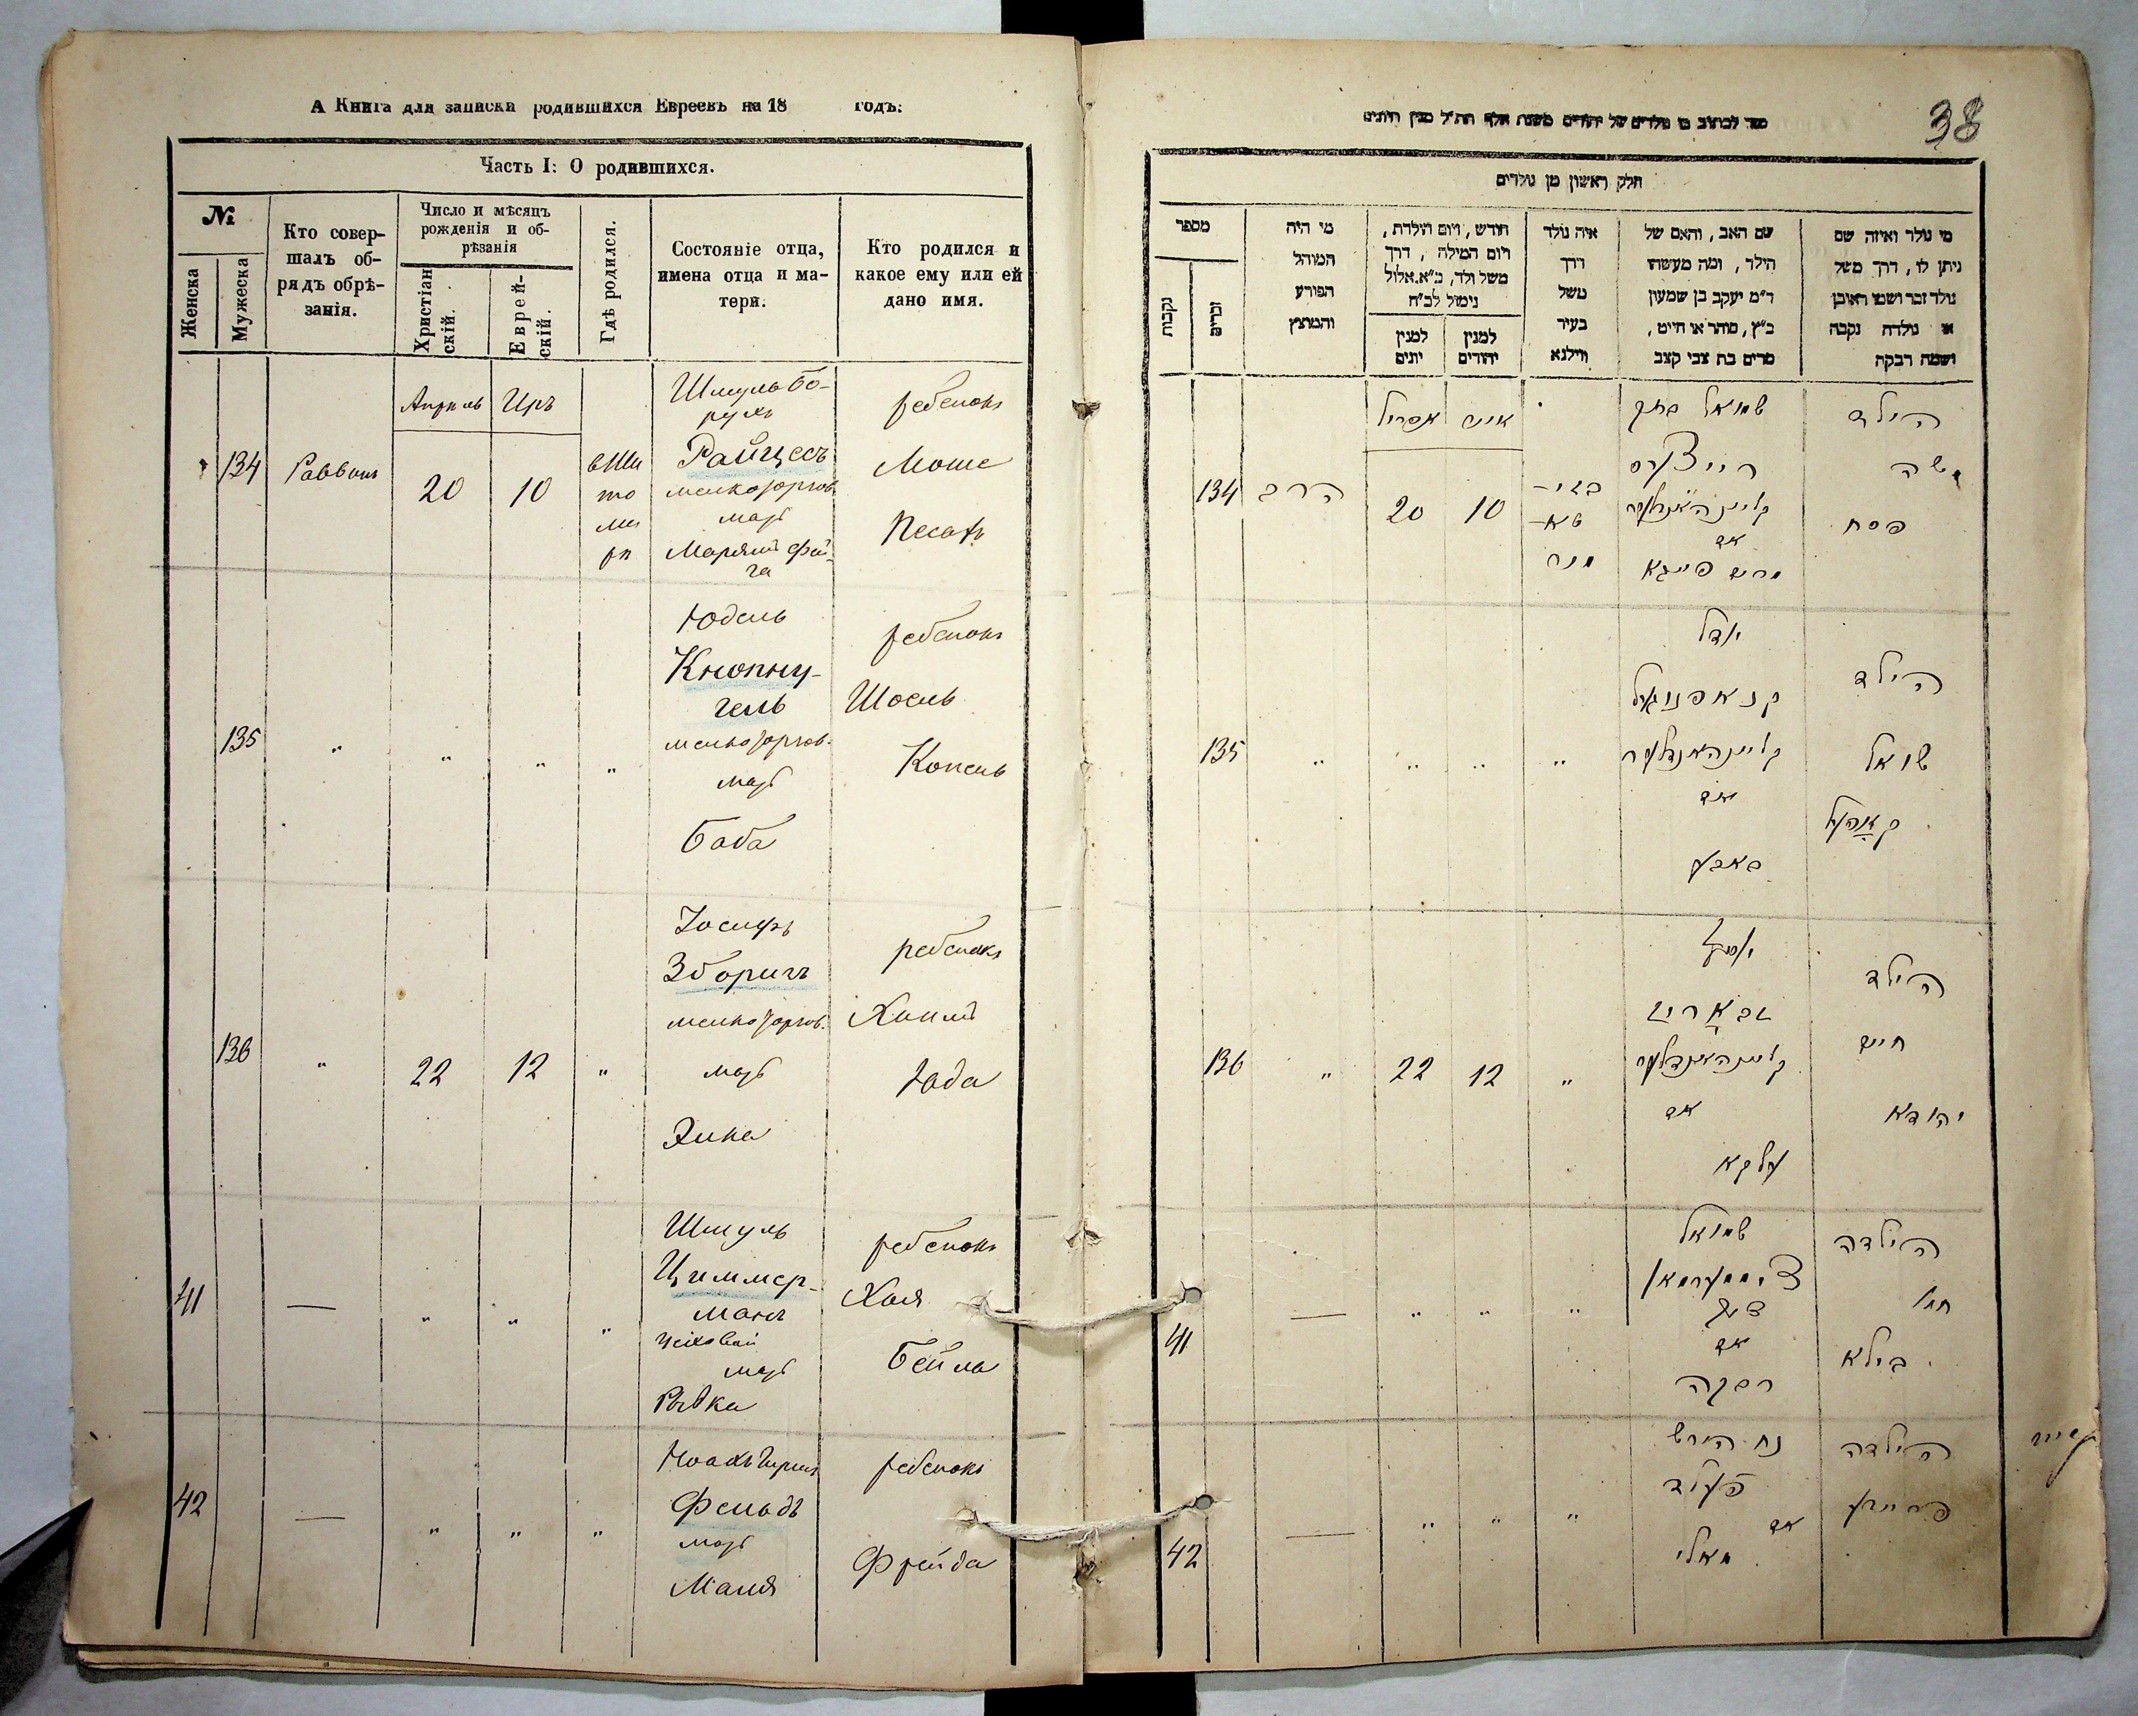 А Книга для записки родившихся Евреевъ на 18 годъ.
Часть I: О родившихся.
№
Женска
Мужеска
Кто совер-
шалъ об-
рядъ обрѣ-
занія.
Число и мѣсяцъ
рожденія и об-
рѣзанія
Христіан
скій.
Еврей-
скій.
Гдѣ родился.
Состояніе отца,
имена отца и ма-
тери.
Кто родился и
какое ему или ей
дано имя.
134
Раввинъ
Апрель
20
Иръ
10
вЖи
то
ми
ри
Шмуль Бо-
рухъ
Райцесъ
мелкоторгов.
мать
Марьямъ Фей-
га
ребенокъ
Моше
Песахъ
135
"
"
"
"
Юдель
Кнопну-
гель
мелкоторгов.
мать
Баба
ребенокъ
Шоель
Копель
136
"
22
12
"
Іосифъ
Зборичъ
мелкоторгов.
мать
Элка
ребенокъ
Хаимъ
Юда
41
—
"
"
"
Шмуль
Циммер-
манъ
цеховой
мать
Рывка
ребенокъ
Хая
Бейла
42
—
"
"
"
Ноахъ Гершъ
Фельдъ
мать
Маля
ребенокъ
Фрейда
38
חלק ראשון מן נולדים
מספר
נקבות
זכרים
מי היה
המוהל
הפורע
והמוצץ
חודש, ויום הולדת,
ויום המילה, דרך
משל ולד, כ"א אלול
נימול לכ"ח
למנין
יונים
למנין
יהודים
איה נולד
דרך
משל
בעיר
ווילנא
שם האב, והאם של
הילד, ומה מעשהו
ד"מ יעקב בן שמעון
כ"ץ, סוחר או חייט,
מרים בת צבי קצב
מי נולד ואיזה שם
ניתן לו, דרך משל
נולד זכר ושמו ראובן
או נולדה נקבה
ושמה רבקה
134
הרב
אפריל
20
אייר
10
שמואל ברוך
רייצעס
קליינהאנדלער
אם
מרים פייגא
הילד
משה
פסח
135
"
"
"
"
יודל
קנאפנוגעל
קליינהאנדלער
אם
באבע
הילד
שואל
136
"
22
12
"
יוסף
זבאריטש
קליינהאנדלער
אם
עלקא
הילד
חיים
יהודא
41
—
"
"
"
שמואל
צימערמאן
צעך
אם
רבקה
הילדה
חיה
בילא
42
—
"
"
"
נח הירש
פעלד
אם
מאלי
הילדה
פריידע